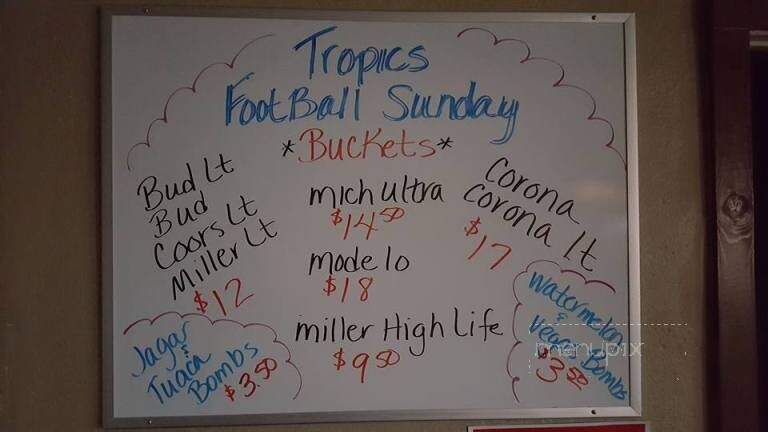 Tropics
FootBall Sunday
*Buckets*
Bud Lt
Bud
Coors Lt
Miller Lt
$12
mich Ultra
$14.50
modelo
$18
miller High Life
$9.50
Corona
Corona Lt
$17
Jagar
&
Tuaca
Bombs
$3.50
Watermelon
&
Vegas Bombs
$3.50
menupix